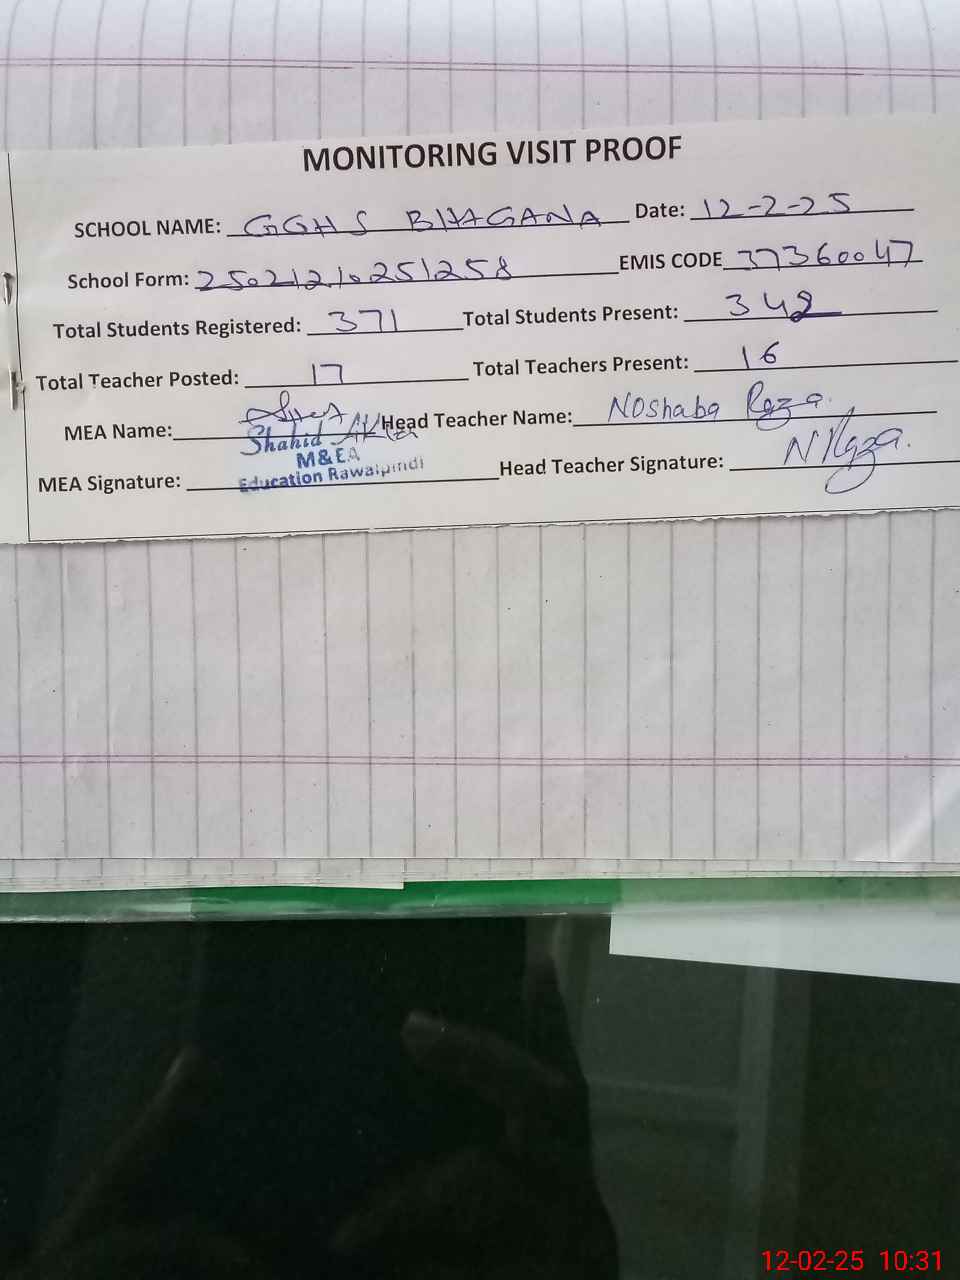 MONITORING VISIT PROOF
SCHOOL NAME: GGHS BHAGANA Date: 12-2-25
School Form: 25021210251258 EMIS CODE 37360047
Total Students Registered: 371 Total Students Present: 342
Total Teacher Posted: 17 Total Teachers Present: 16
MEA Name: Head Teacher Name: Noshaba Raza.
Shahid Akhtar
M&EA
Education Rawalpindi
MEA Signature: Head Teacher Signature: N Raza.
12-02-25 10:31